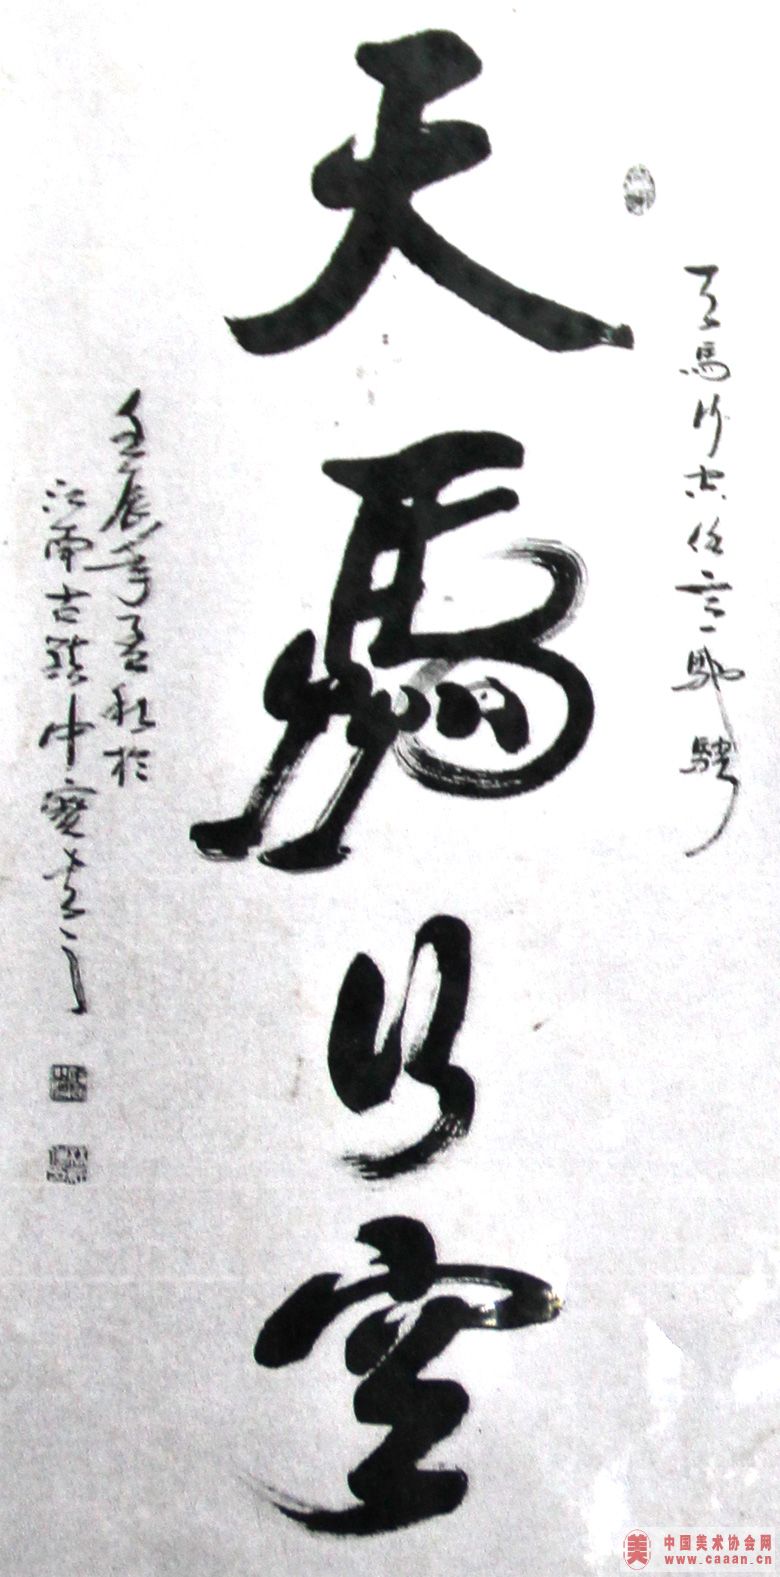 天馬行空
天馬行空任意馳騁
壬辰年孟秋於
江南古鎮中寶
中国美术协会网
www.caaan.cn